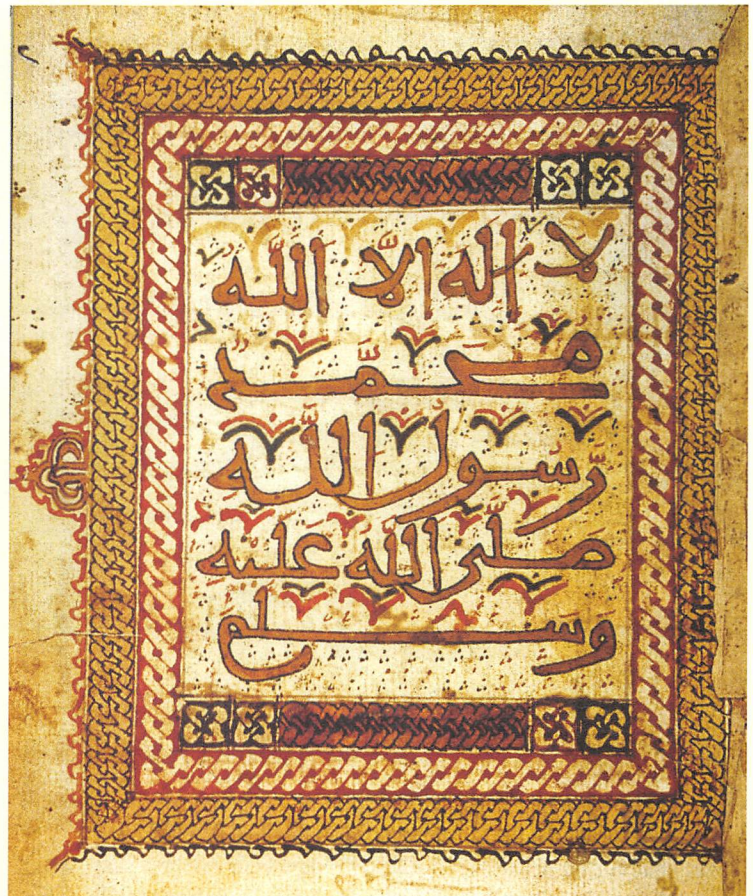 لا اله الا الله
محمد
رسول الله
صلى الله عليه
وسلم